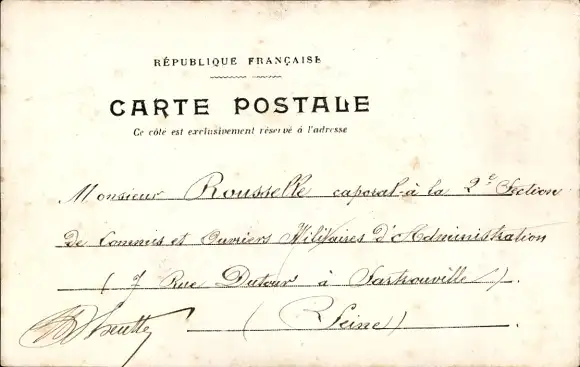 RÉPUBLIQUE FRANÇAISE
CARTE POSTALE
Ce côté est exclusivement réservé à l'adresse
Monsieur Rousselle caporal à la 2e Section
De Commis et Ouvriers Militaires d'Administration
(7 Rue à Sartrouville)
(Seine)